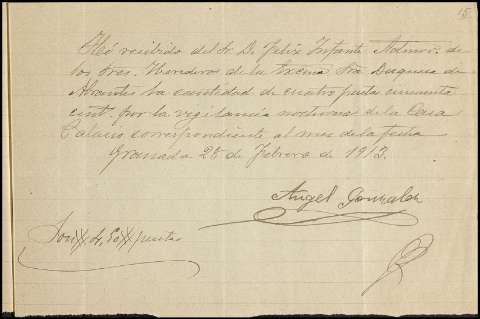 15
He recibido del Sr. D. Felix Infante Admor. de
los Sres. Herederos de la Excma. Sra. Duquesa de
Abrantes la cantidad de cuatro ptas cincuenta
cint. por la vigilancia nocturna de la Casa
Palacio correspondiente al mes de la fecha
Granada 28 de Febrero de 1913.
Angel Gonzalez
Son 4, 50 pesetas